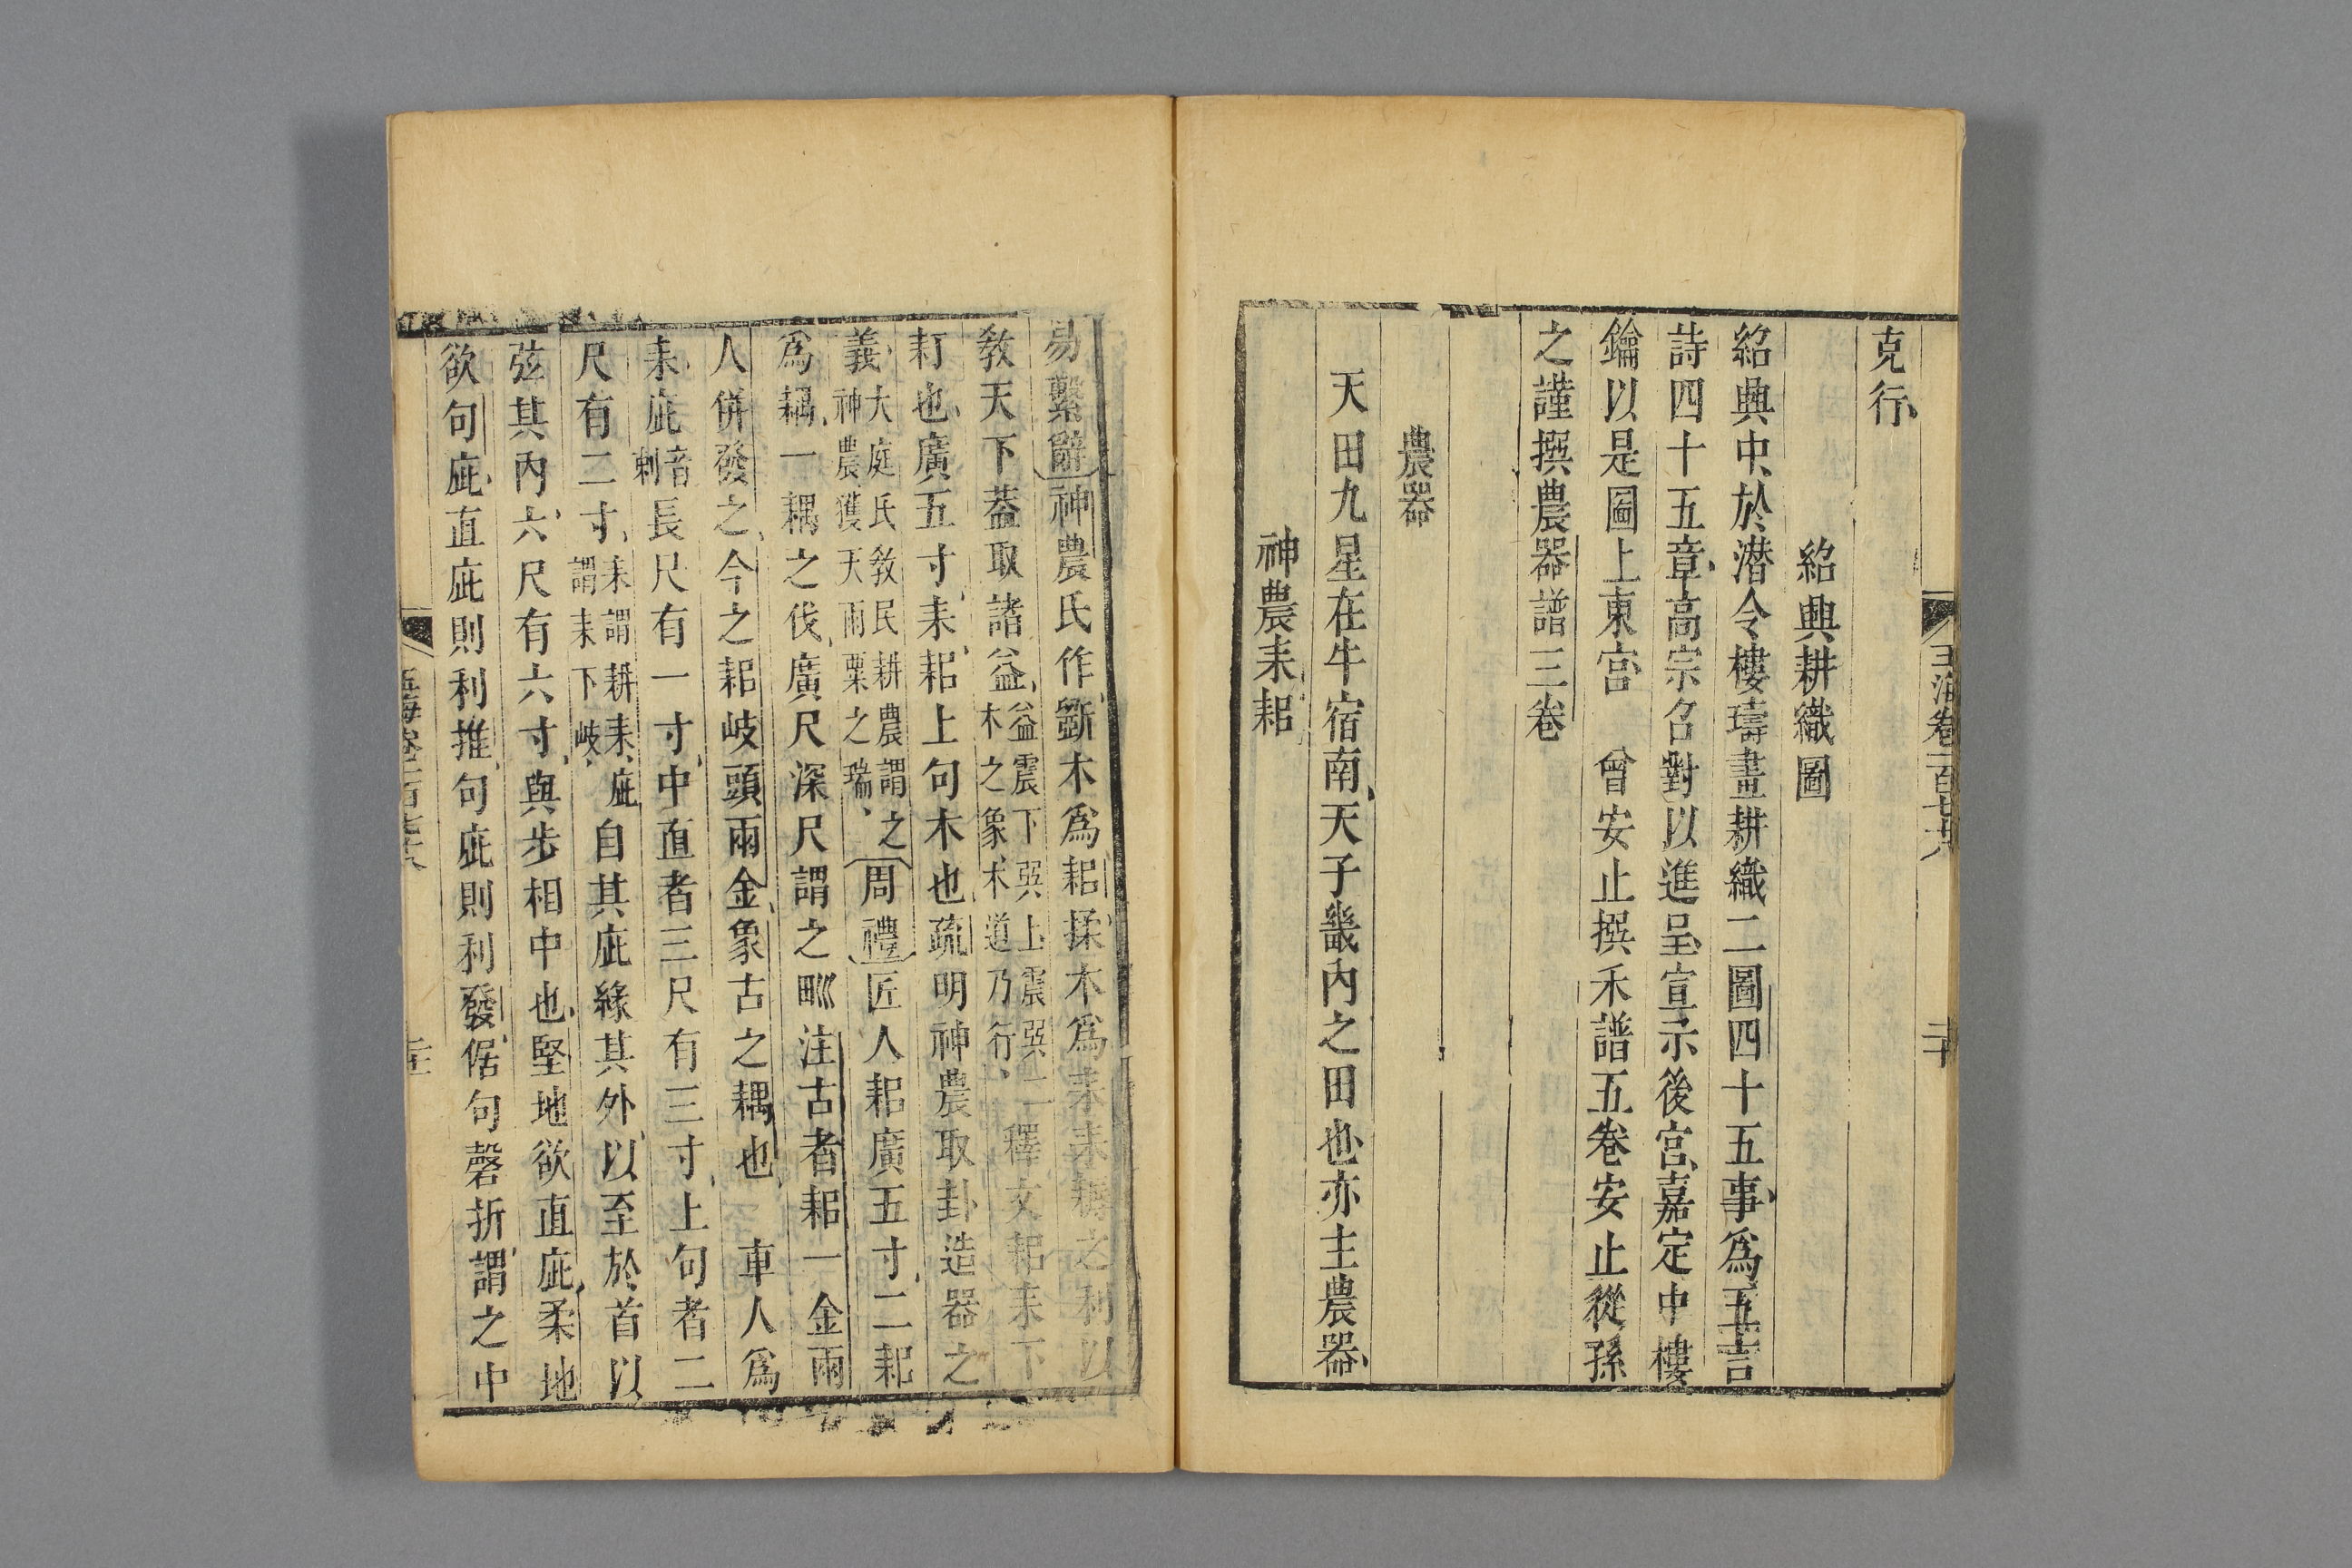 玉海卷一百七十八
二十
克行
紹興耕織圖
紹興中於潜令樓璹畫耕織二圖四十五事爲五言
詩四十五章高宗召對以進呈宣示後宮嘉定中樓
鑰以是圖上東宮　曾安止撰禾譜五卷安止從孫
之謹撰農器譜三卷
農器
天田九星在牛宿南天子畿內之田也亦主農器
神農耒耜
易繫辭神農氏作斵木爲耜揉木爲耒耒耨之利以
敎天下葢取諸益益震下巽上震巽二木之象木道乃行釋文耜耒下
耓也廣五寸耒耜上句木也疏明神農取卦造器之
義大庭氏敎民耕農謂之神農獲天雨粟之瑞周禮匠人耜廣五寸二耜
爲耦一耦之伐廣尺深尺謂之𤰕注古者耜一金兩
人併發之今之耜岐頭兩金象古之耦也　車人爲
耒庛音刺長尺有一寸中直者三尺有三寸上句者二
尺有二寸耒謂耕耒庛謂耒下岐自其庛緣其外以至於首以
弦其內六尺有六寸與步相中也堅地欲直庛柔地
欲句庛直庛則利推句庛則利發倨句磬折謂之中